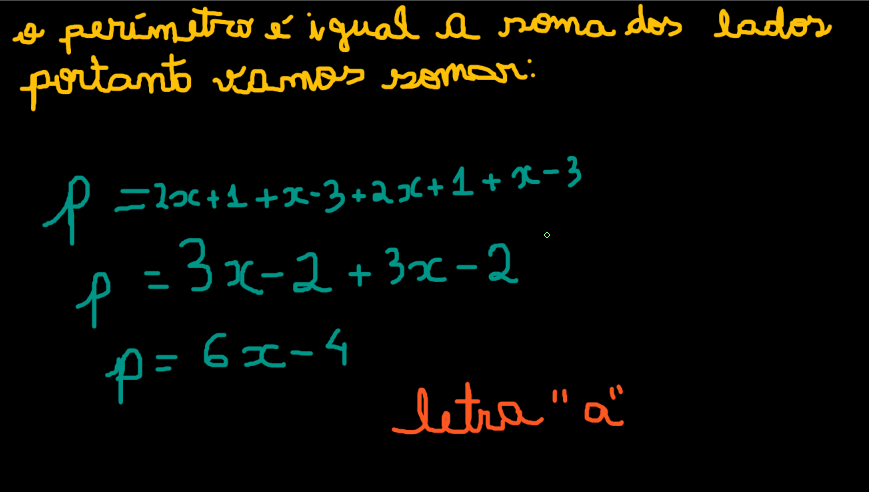 o perímetro é igual a soma dos lados
portanto vamos somar:
p = 2x+1+x-3+2x+1+x-3
p = 3x-2+3x-2
p = 6x-4
letra "a"